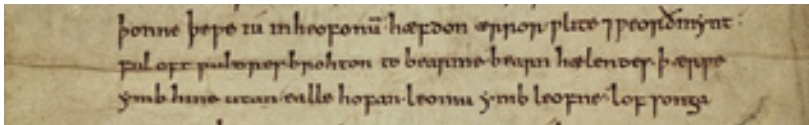 þonne þeƿe iú inheofonū· hæfdon ærror ƿlite ⁊ ƿeorðmynt·
ful oft ƿuldres·brohton to bearme·bearn hælendes·þærƿe
ymb hine utan·ealle hofan·leomu ymb leofne·lof songa